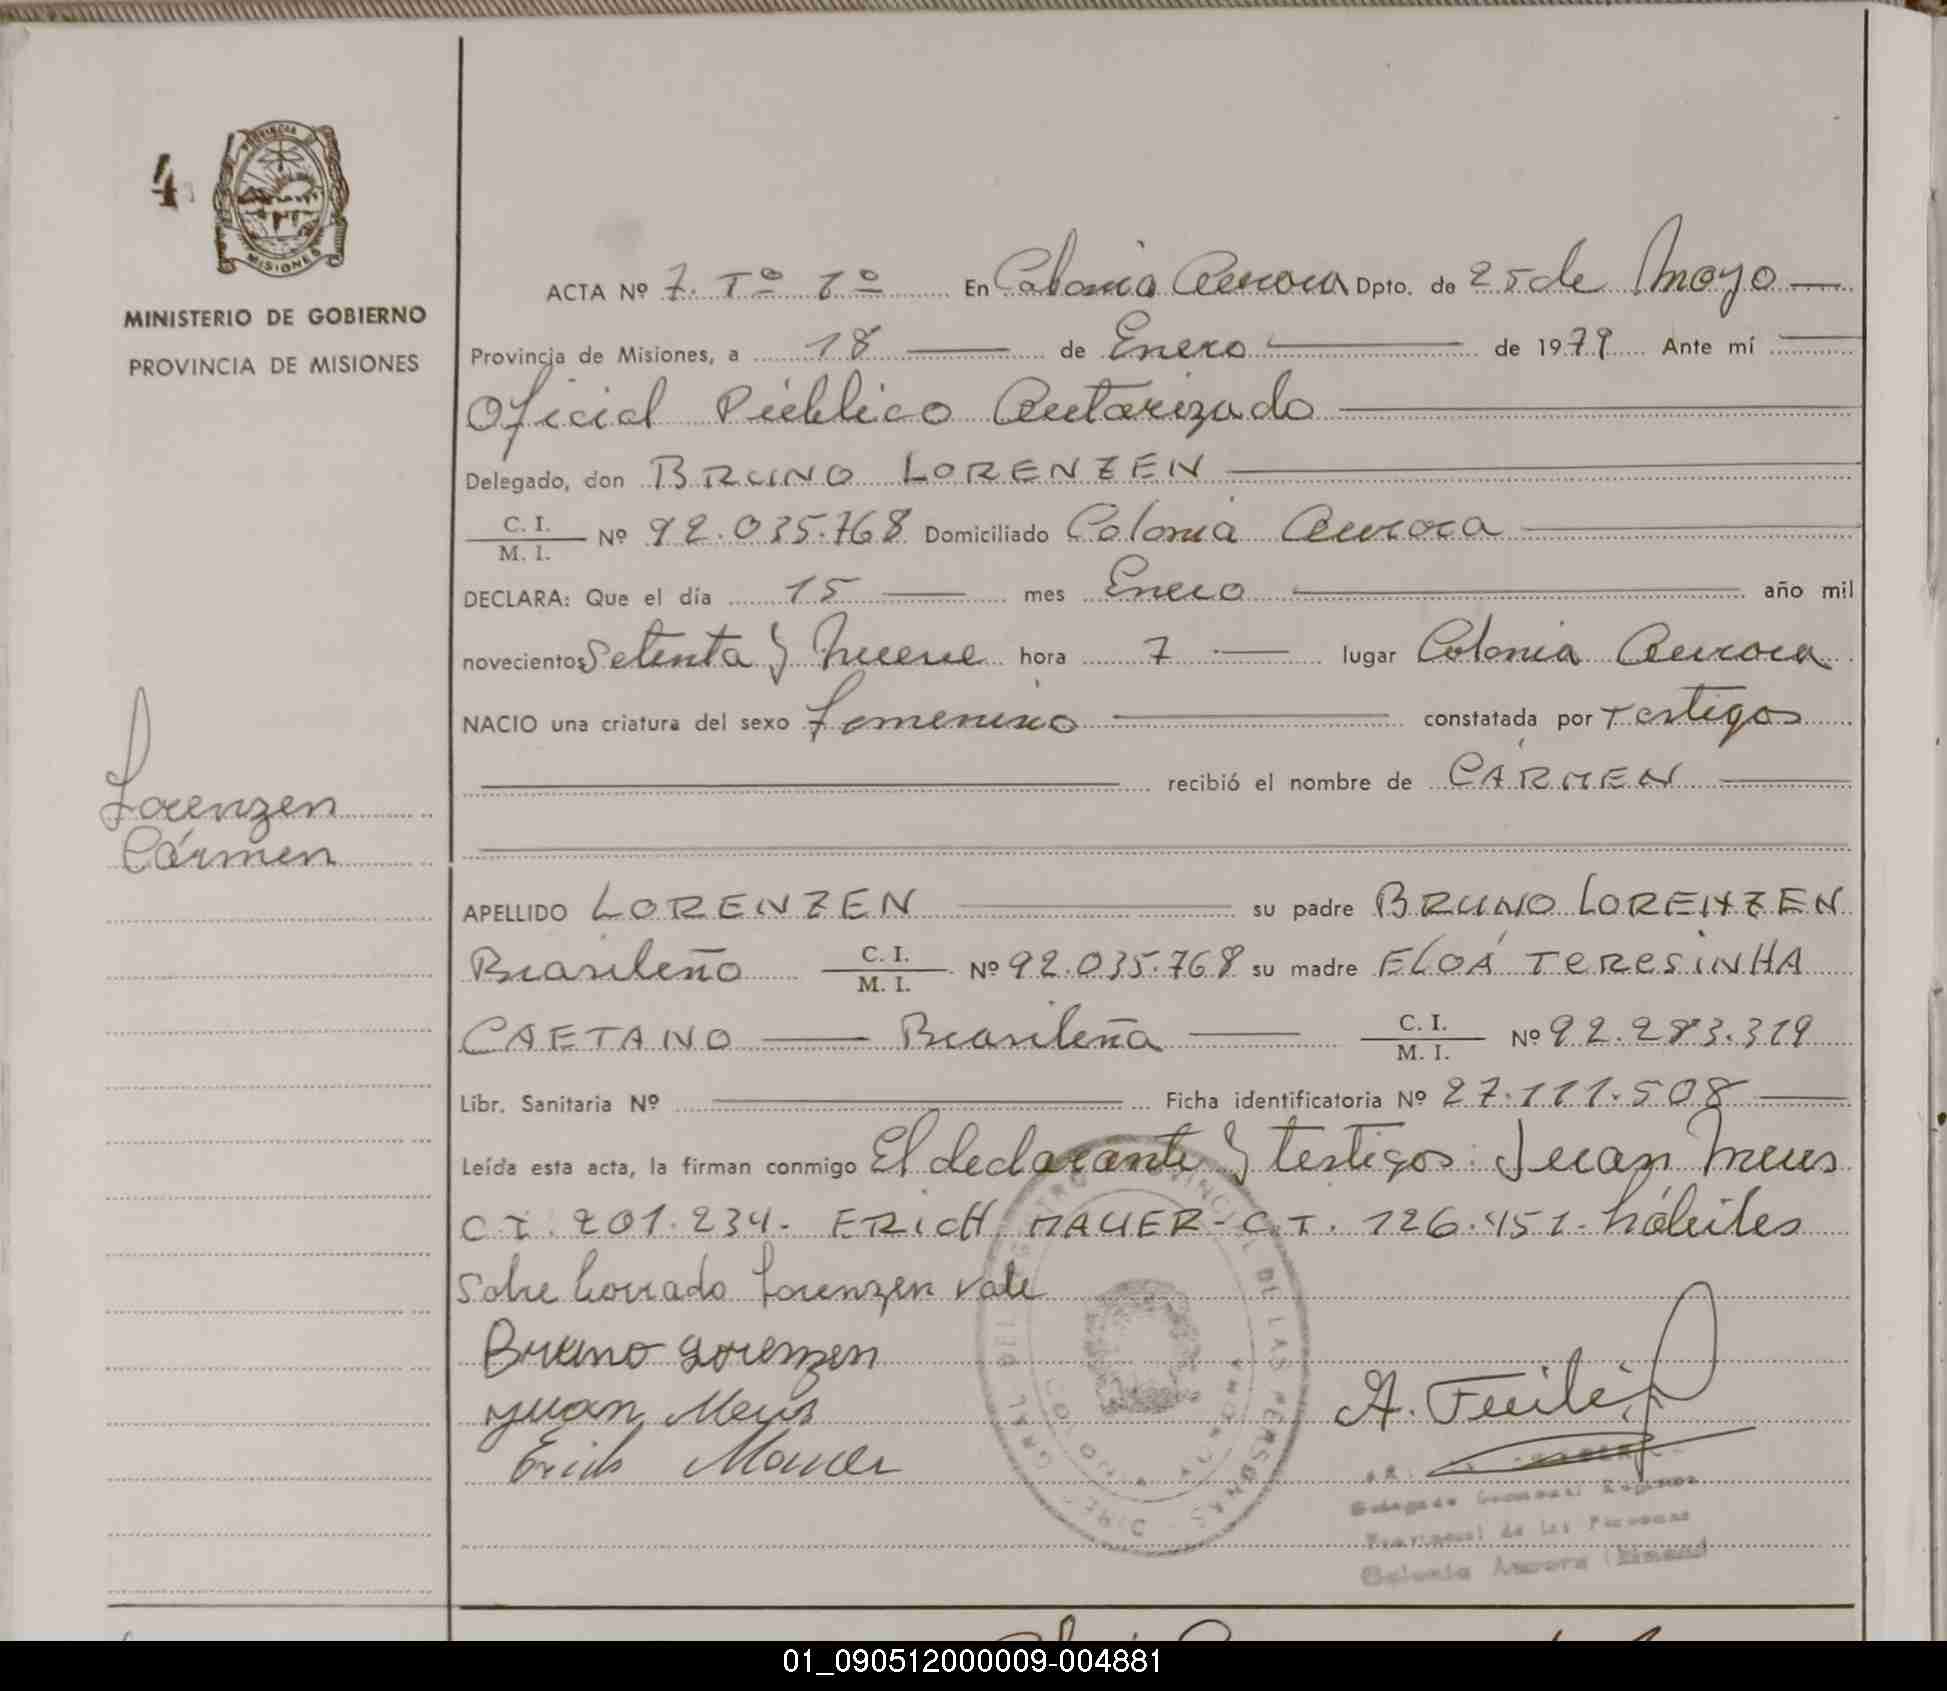 4
PROVINCIA DE
MISIONES
MINISTERIO DE GOBIERNO
PROVINCIA DE MISIONES
Lorenzen
Cármen
ACTA Nº 7. Tº 1º En Colonia Aurora Dpto. de 25 de Mayo
Provincia de Misiones, a 18 de Enero de 1979 Ante mí
Oficial Público Autorizado
Delegado, don BRUNO LORENZEN
C. I. / M. I. Nº 92.035.768 Domiciliado Colonia Aurora
DECLARA: Que el día 15 mes Enero año mil
novecientos Setenta y Nueve hora 7 lugar Colonia Aurora
NACIO una criatura del sexo femenino constatada por Testigos
recibió el nombre de CÁRMEN
APELLIDO LORENZEN su padre BRUNO LORENZEN
Brasileño C. I. / M. I. Nº 92.035.768 su madre ELOÁ TERESINHA
CAETANO Brasileña C. I. / M. I. Nº 92.283.319
Libr. Sanitaria Nº Ficha identificatoria Nº 27.111.508
Leída esta acta, la firman conmigo El declarante y testigos: Juan Meus
C.I. 201.234.- ERICH MAUER - C.I. 126.451.- hábiles
Sobre borrado Lorenzen vale
Bruno Lorenzen
Juan Meus
Erich Mauer
DE LAS PERSONAS
Provincial de las Personas
Colonia Aurora
01_090512000009-004881